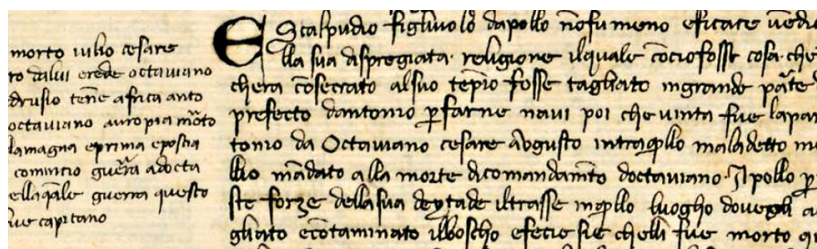 morto iulio cesare
ro dalui erede octaviano
drusio tene africa anto
octaviano
lamagna eprima eposcia
comincio guerra adocta
ellaquale guerra questo
ue capitano
Escalpudio figliuolo dapollo nofu meno eficace vedi
lla sua dispregiata religione ilquale cociofosse cosa che
chera cosecrato alsuo tepio fosse tagliato ingrande parte
prefecto dantonio p farne navi poi che vinta fue lapar
tonio da Octaviano cesare avgusto intraqllo maladetto
llio madato alla morte dicomandamto doctaviano Ipollo p
ste forze della sua deytade iltrasse inqllo luogho dovegli
gliato econtaminato ilboscho efecie sie chelli fue morto